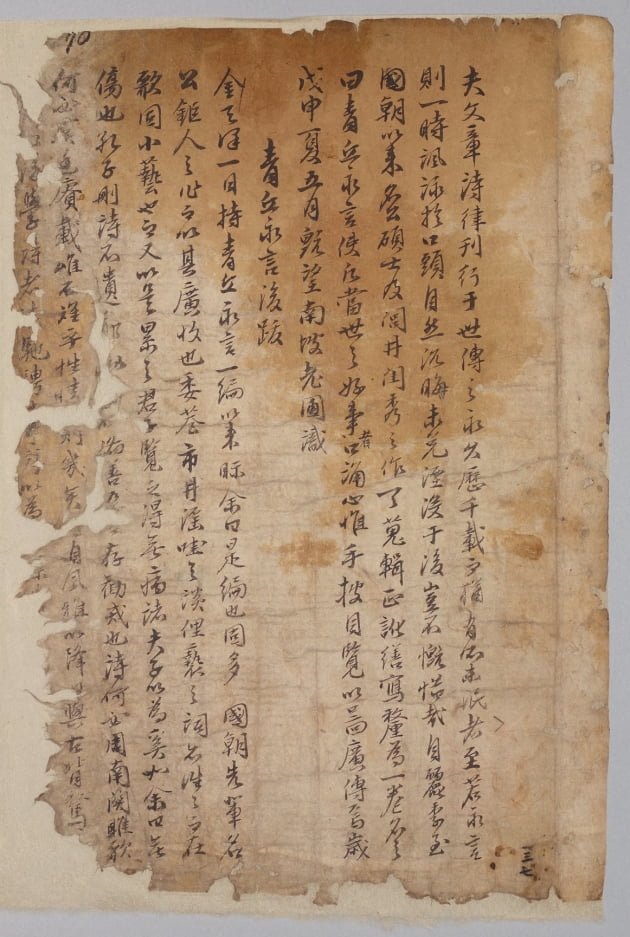 夫文章詩律刊行于世傳之永久歷千載而猶有所未泯者至若永言
則一時諷詠於口頭自然沉晦未免湮沒于後豈不慨惜哉自麗季至
國朝以來名公碩士及閭井閨秀之作一一蒐輯正訛繕寫釐爲一卷名之
曰青丘永言使凡當世之好事者口誦心惟手披目覽以圖廣傳焉歲
戊申夏五月旣望南坡老圃識
青丘永言後跋
金天澤一日持青丘永言一編以來眎余曰是編也固多 國朝先輩名
公鉅人之作而以其廣收也委巷市井淫哇之談俚褻之詞亦往往而在
歌固小藝也而又以是累之君子覽之得無病諸夫子以爲奚如余曰無
傷也孔子刪詩不遺 備善惡 存勸戒也詩何必周南關雎歌
何必虞廷賡載惟不離乎性情則幾矣 自風雅以降日與古背騖
學詩者 馳騁 以爲
三七